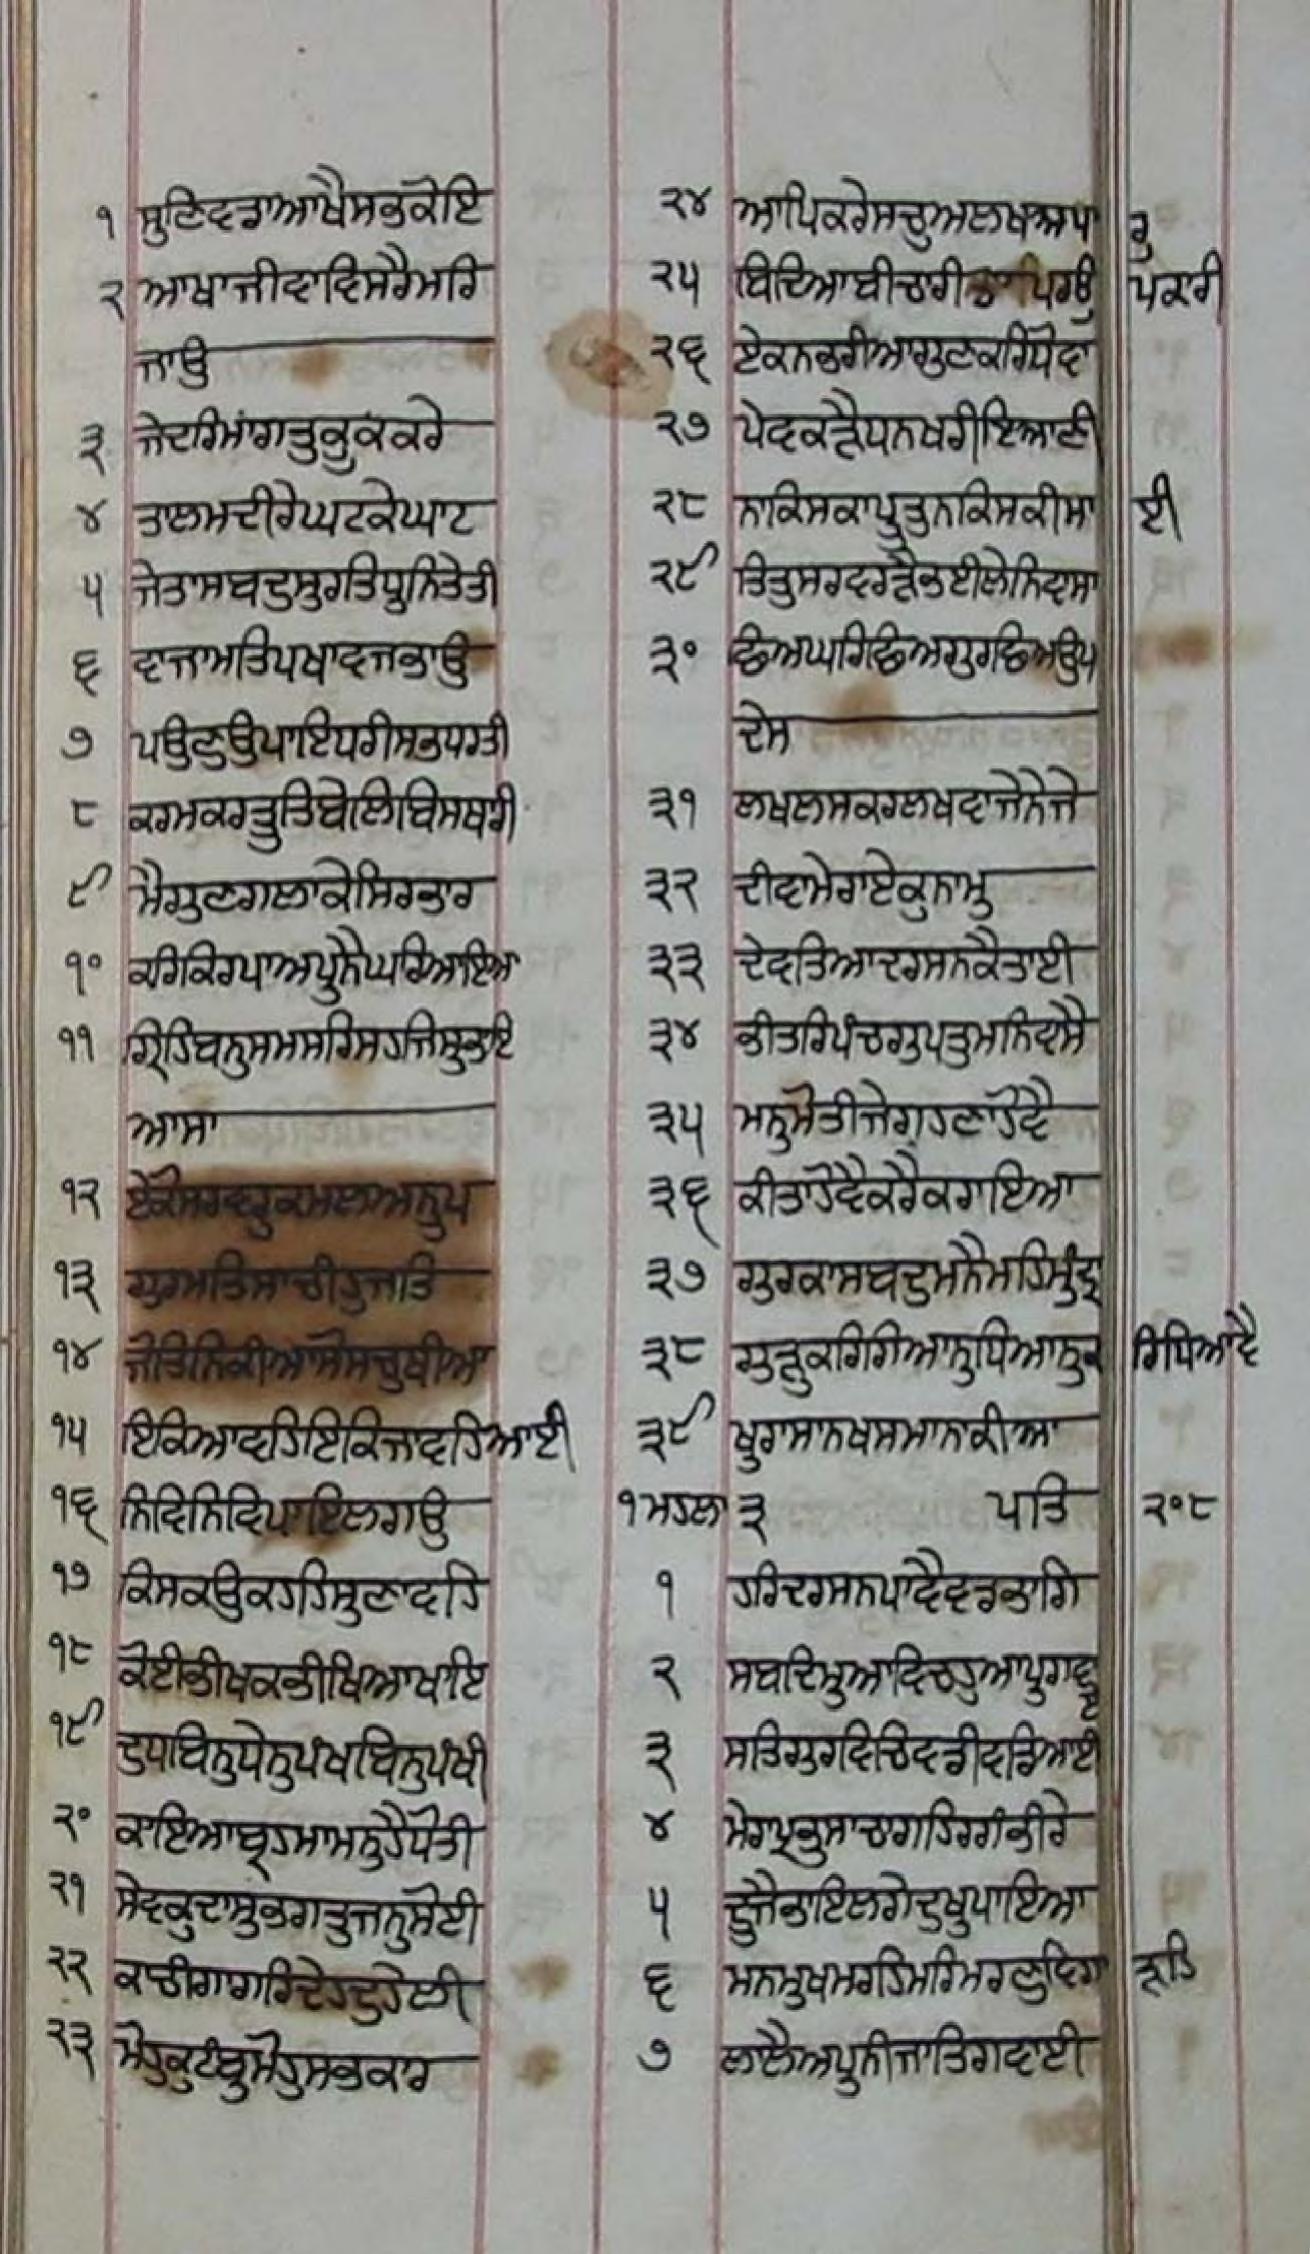 ੧ ਸੁਣਿਵਡਾਆਖੈਸਭਕੋਇ
੨ ਆਖਾਜੀਵਾਵਿਸਰੈਮਰਿ
ਜਾਉ
੩ ਜੇਦਰਿਮਾਂਗਤੁਕੂਕਕਰੇ
੪ ਤਾਲਮਦੀਰੇਘਟਕੇਘਾਟ
੫ ਜੇਤਾਸਬਦੁਸੁਰਤਿਧੁਨਿਤੇਤੀ
੬ ਵਾਜਾਮਤਿਪਖਾਵਜਭਾਉ
੭ ਪਉਣੁਉਪਾਇਧਰੀਸਭਧਰਤੀ
੮ ਕਰਮਕਰਤੂਤਿਬੇਲਿਬਿਸਥਾਰੀ
੯ ਮੈਗੁਣਗਲਾਕੇਸਿਰਭਾਰ
੧੦ ਕਰਿਕਿਰਪਾਅਪੁਨੈਘਰਿਆਇਆ
੧੧ ਗ੍ਰਿਹਿਬਨੁਸਮਸਰਿਸਹਜਿਸੁਭਾਇ
ਆਸਾ
੧੨ ਏਕੋਸਰਵਰੁਕਮਲਅਨੂਪ
੧੩ ਗੁਰਮਤਿਸਾਚੀਹੁਜਤਿ
੧੪ ਜੋਤਿਨਿਕੀਆਸੋਸਚੁਥੀਆ
੧੫ ਇਕਿਆਵਹਿਇਕਿਜਾਵਹਿਆਈ
੧੬ ਨਿਵਿਨਿਵਿਪਾਇਲਗਉ
੧੭ ਕਿਸਕਉਕਹਹਿਸੁਣਾਵਹਿ
੧੮ ਕੋਈਭੀਖਕਭੀਖਿਆਖਾਇ
੧੯ ਦੁਧਬਿਨੁਧੇਨੁਪੰਖਬਿਨੁਪੰਖੀ
੨੦ ਕਾਇਆਬ੍ਰਹਮਾਮਨੁਹੈਧੋਤੀ
੨੧ ਸੇਵਕੁਦਾਸੁਭਗਤੁਜਨੁਸੋਈ
੨੨ ਕਾਚੀਗਾਗਰਿਦੇਹਦੁਹੇਲੀ
੨੩ ਮੋਹੁਕੁਟੰਬੁਮੋਹੁਸਭਕਾਰ
੨੪ ਆਪਿਕਰੇਸਚੁਅਲਖਅਪਾਰੁ
੨੫ ਬਿਦਿਆਬੀਚਾਰੀਤਾਪਿਰਉਪਕਾਰੀ
੨੬ ਏਕਨਭਰੀਆਗੁਣਕਰਿਧੋਵਾ
੨੭ ਪੇਵਕੜੈਧਨਖਰੀਇਆਣੀ
੨੮ ਨਾਕਿਸਕਾਪੂਤੁਨਕਿਸਕੀਮਾਈ
੨੯ ਤਿਤੁਸਰਵਰੜੈਭਈਲੇਨਿਵਾਸਾ
੩੦ ਛਿਅਘਰਿਛਿਅਗੁਰਛਿਅਉਪ
ਦੇਸ
੩੧ ਲਖਲਸਕਰਲਖਵਾਜੇਨੇਜੇ
੩੨ ਦੀਵਾਮੇਰਾਏਕੁਨਾਮੁ
੩੩ ਦੇਵਤਿਆਦਰਸਨਕੈਤਾਈ
੩੪ ਭੀਤਰਿਪੰਚਗੁਪਤੁਮਨਿਵਾਸੇ
੩੫ ਮਨੁਮੋਤੀਜੇਗਹਣਾਹੋਵੈ
੩੬ ਕੀਤਾਹੋਵੈਕਰੇਕਰਾਇਆ
੩੭ ਗੁਰਕਾਸਬਦੁਮਨੈਮਹਿਮੁੰਦ੍ਰਾ
੩੮ ਗੁੜੁਕਰਿਗਿਆਨੁਧਿਆਨੁਕਰਿਧਿਆਵੈ
੩੯ ਖੁਰਾਸਾਨਖਸਮਾਨਕੀਆ
੧ ਮਹਲਾ ੩ ਪਤਿ ੨੦੮
੧ ਹਰਿਦਰਸਨਪਾਵੈਵਡਭਾਗਿ
੨ ਸਬਦਿਮੁਆਵਿਚਹੁਆਪੁਗਵਾਇ
੩ ਸਤਿਗੁਰਵਿਚਿਵਡੀਵਡਿਆਈ
੪ ਮੇਰਾਪ੍ਰਭੁਸਾਚਾਗਹਿਰਗੰਭੀਰ
੫ ਦੂਜੈਭਾਇਲਗੇਦੁਖੁਪਾਇਆ
੬ ਮਨਮੁਖਮਰਹਿਮਰਿਮਰਣੁਵਿਗਾੜਹਿ
੭ ਲਾਲੈਅਪੁਨੀਜਾਤਿਗਵਾਈ